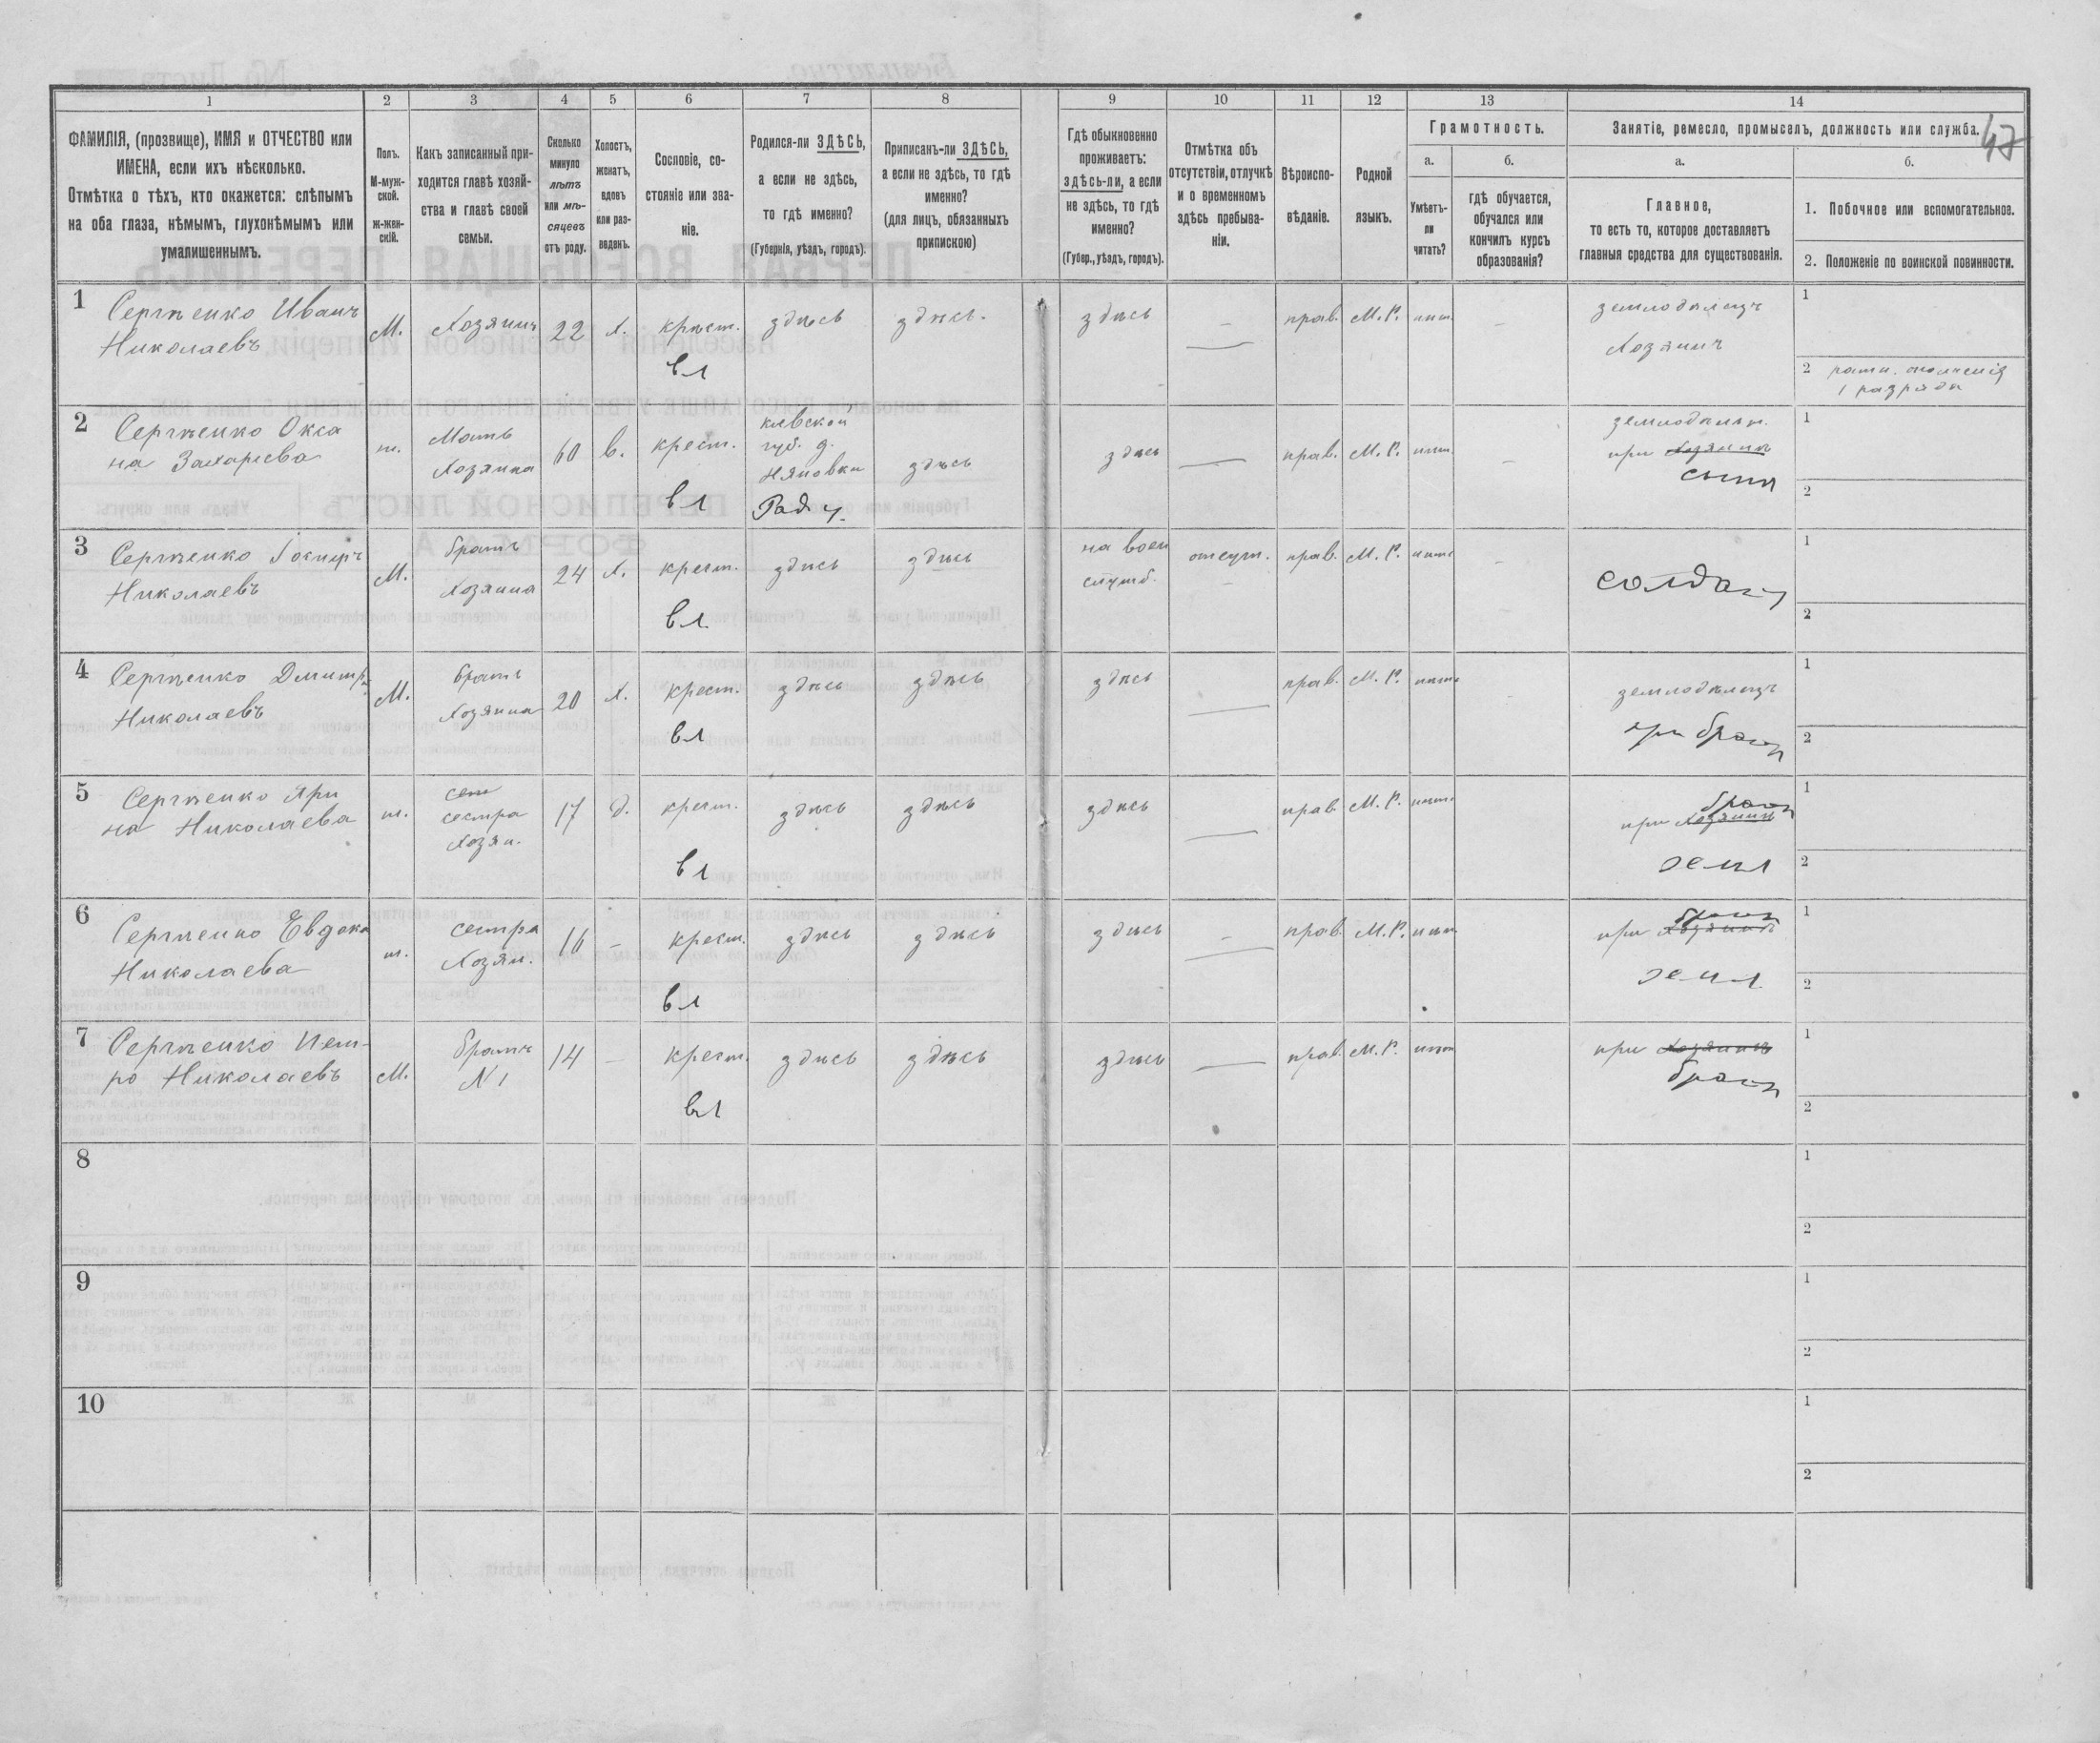 47
1 2 3 4 5 6 7 8 9 10 11 12 13 14
ФАМИЛІЯ, (прозвище), ИМЯ и ОТЧЕСТВО или
ИМЕНА, если ихъ нѣсколько.
Отмѣтка о тѣхъ, кто окажется: слѣпымъ
на оба глаза, нѣмымъ, глухонѣмымъ или
умалишеннымъ.
Полъ.
М-муж-
ской.
ж-жен-
скій.
Какъ записанный при-
ходится главѣ хозяй-
ства и главѣ своей
семьи.
Сколько
минуло
лѣтъ
или мѣ-
сяцевъ
отъ роду.
Холостъ,
женатъ,
вдовъ
или раз-
веденъ.
Сословіе, со-
стояніе или зва-
ніе.
Родился-ли ЗДѢСЬ,
а если не здѣсь,
то гдѣ именно?
(Губернія, уѣздъ, городъ).
Приписанъ-ли ЗДѢСЬ,
а если не здѣсь, то гдѣ
именно?
(для лицъ, обязанныхъ
припискою)
Гдѣ обыкновенно
проживаетъ:
здѣсь-ли, а если
не здѣсь, то гдѣ
именно?
(Губер., уѣздъ, городъ).
Отмѣтка объ
отсутствіи, отлучкѣ
и о временномъ
здѣсь пребыва-
ніи.
Вѣроиспо-
вѣданіе.
Родной
языкъ.
Грамотность.
а.
Умѣетъ-
ли
читать?
б.
гдѣ обучается,
обучался или
кончилъ курсъ
образованія?
Занятіе, ремесло, промыселъ, должность или служба.
а.
Главное,
то есть то, которое доставляетъ
главныя средства для существованія.
б.
1. Побочное или вспомогательное.
2. Положеніе по воинской повинности.
1 Сергѣенко Иванъ
Николаевъ
М.
Хозяинъ
22
х.
крѣст.
вл
здѣсь
здѣсь.
здѣсь
—
прав.
М.Р.
нѣт.
земледѣлецъ
Хозяинъ
1
2 ратн. ополченія
1 разряда
2 Сергѣенко Окса
на Захарiева
ж.
Мать
Хозяина
60
в.
крест.
вл
кіевской
губ. д.
Няновки
Рад. у.
здѣсь
здѣсь
—
прав.
М.Р.
нѣт.
земледѣлiт.
при хозяинѣ
сынѣ
1
2
3 Сергѣенко Іосифъ
Николаевъ
М.
братъ
Хозяина
24
х.
крест.
вл.
здѣсь
здѣсь
на воен
служб.
отсут.
прав.
М.Р.
нѣт
солдатъ
1
2
4 Сергѣенко Дмитрi
Николаевъ
М.
братъ
Хозяина
20
х.
крест.
вл
здѣсь
здѣсь
здѣсь
—
прав.
М.Р.
нѣтъ
земледѣлецъ
при братѣ
1
2
5 Сергѣенко Яри
на Николаева
ж.
сест
сестра
хозяи.
17
д.
крест.
вл
здѣсь
здѣсь
здѣсь
—
прав.
М.Р.
нѣт.
братѣ
при хозяинѣ
земл
1
2
6 Сергѣенко Евдока
Николаева
ж.
сестра
Хозяи.
16
—
крест.
вл
здѣсь
здѣсь
здѣсь
—
прав.
М.Р.
нѣт.
братѣ
при хозяинѣ
земл
1
2
7 Сергѣенко Пет-
ро Николаевъ
М.
братъ
№ 1
14
—
крест.
вл
здѣсь
здѣсь
здѣсь
—
прав.
М.Р.
нѣт
при хозяинѣ
братѣ
1
2
8
1
2
9
1
2
10
1
2